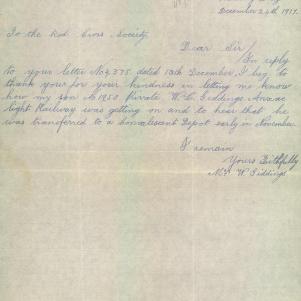 December 24th 1917.
To the Red Cross Society,
Dear Sir
In reply
to your letter No 4,375 dated 13th December, I beg to
thank your for your kindness in letting me know
how my son No 1950 Private W. C. Giddings. Anzac
light Railway was getting on and to hear that he
was transferred to a Convalescent Depot early in November.
I remain
Yours Faithfully
W Giddings